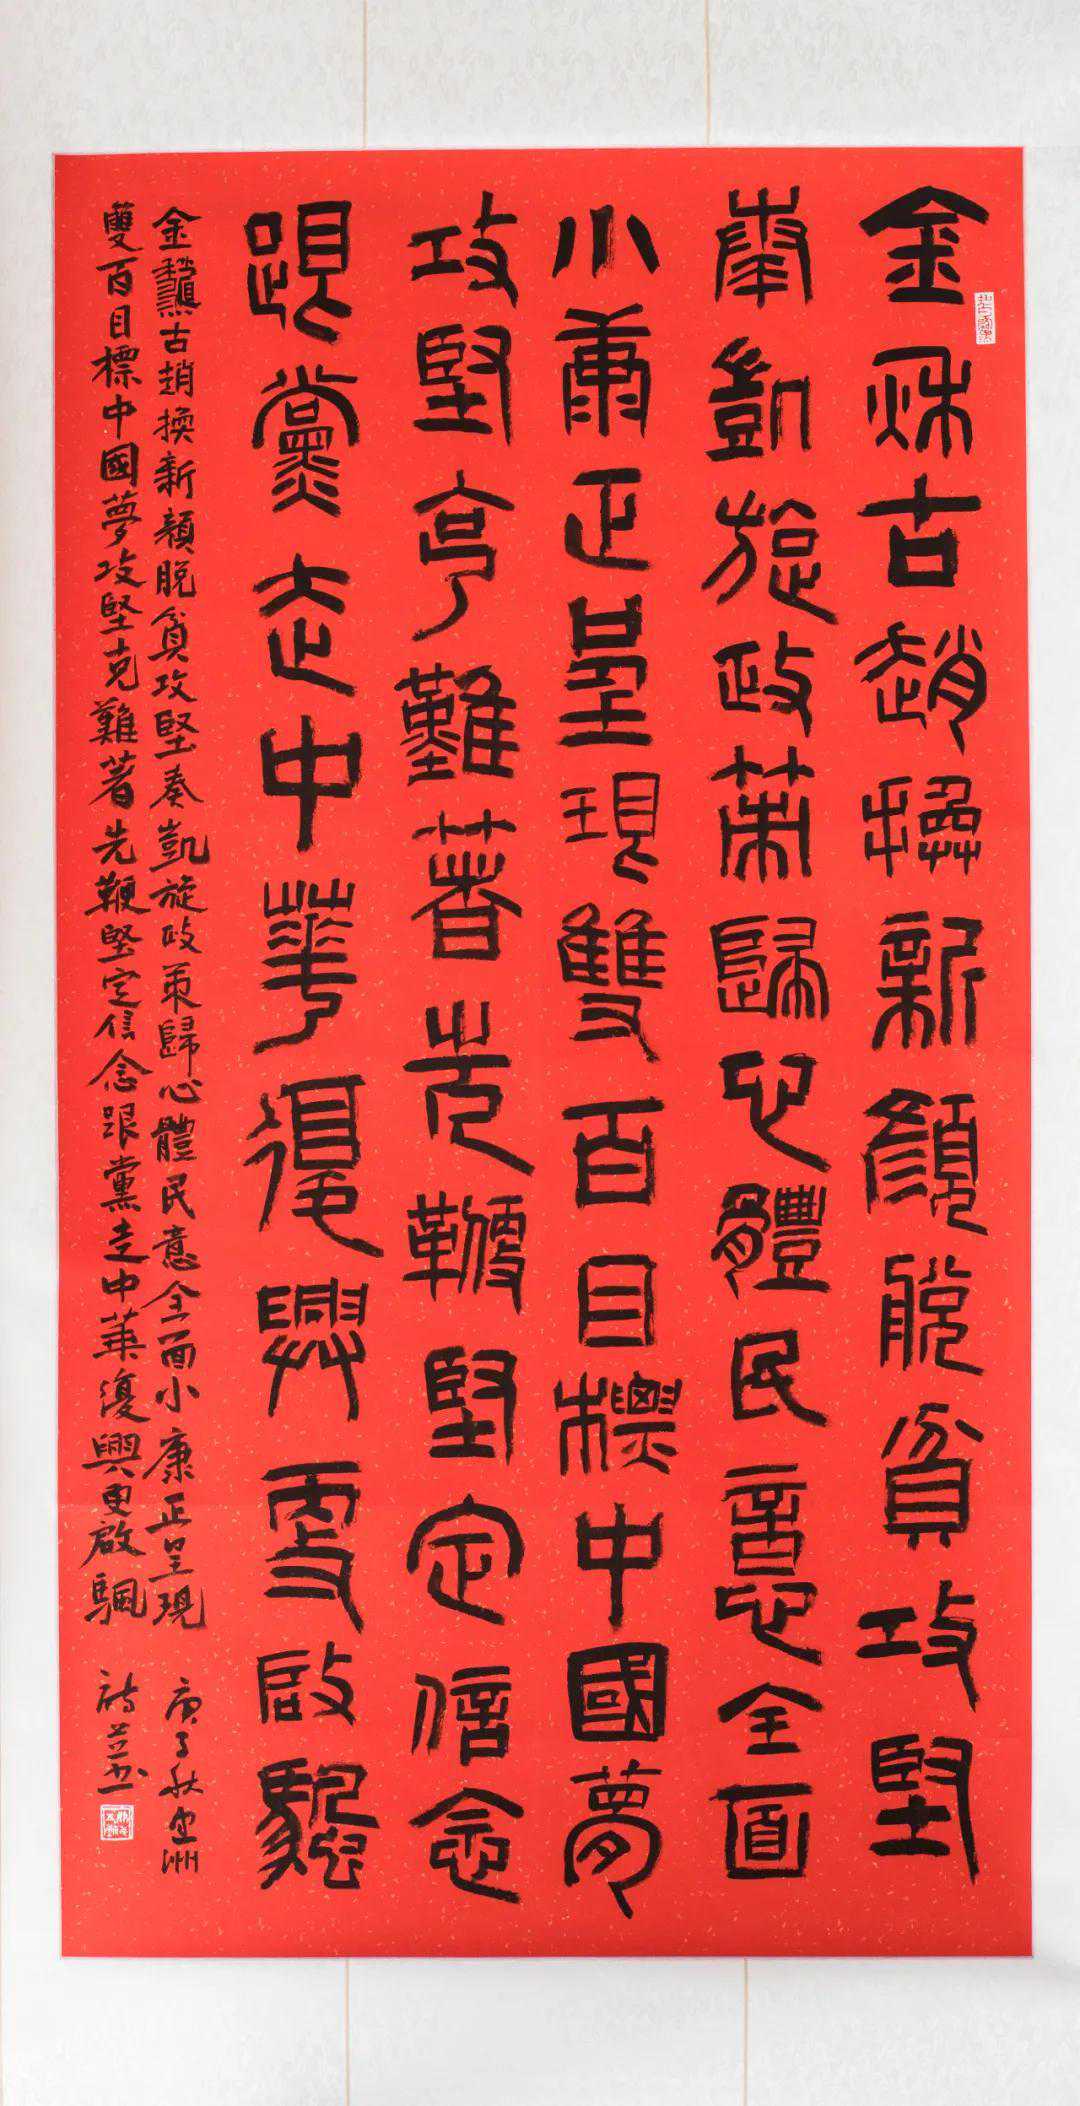 金秌古趙換新顏脫貧攻堅
奏凱旋政策歸心體民意全面
小康正呈現雙百目標中國夢
攻堅克難著先鞭堅定信念
跟黨走中華復興更啟颿
金龝古趙換新顏脫貧攻堅奏凱旋政策歸心體民意全面小康正呈現
雙百目標中國夢攻堅克難著先鞭堅定信念跟黨走中華復興更啟颿
庚子秋